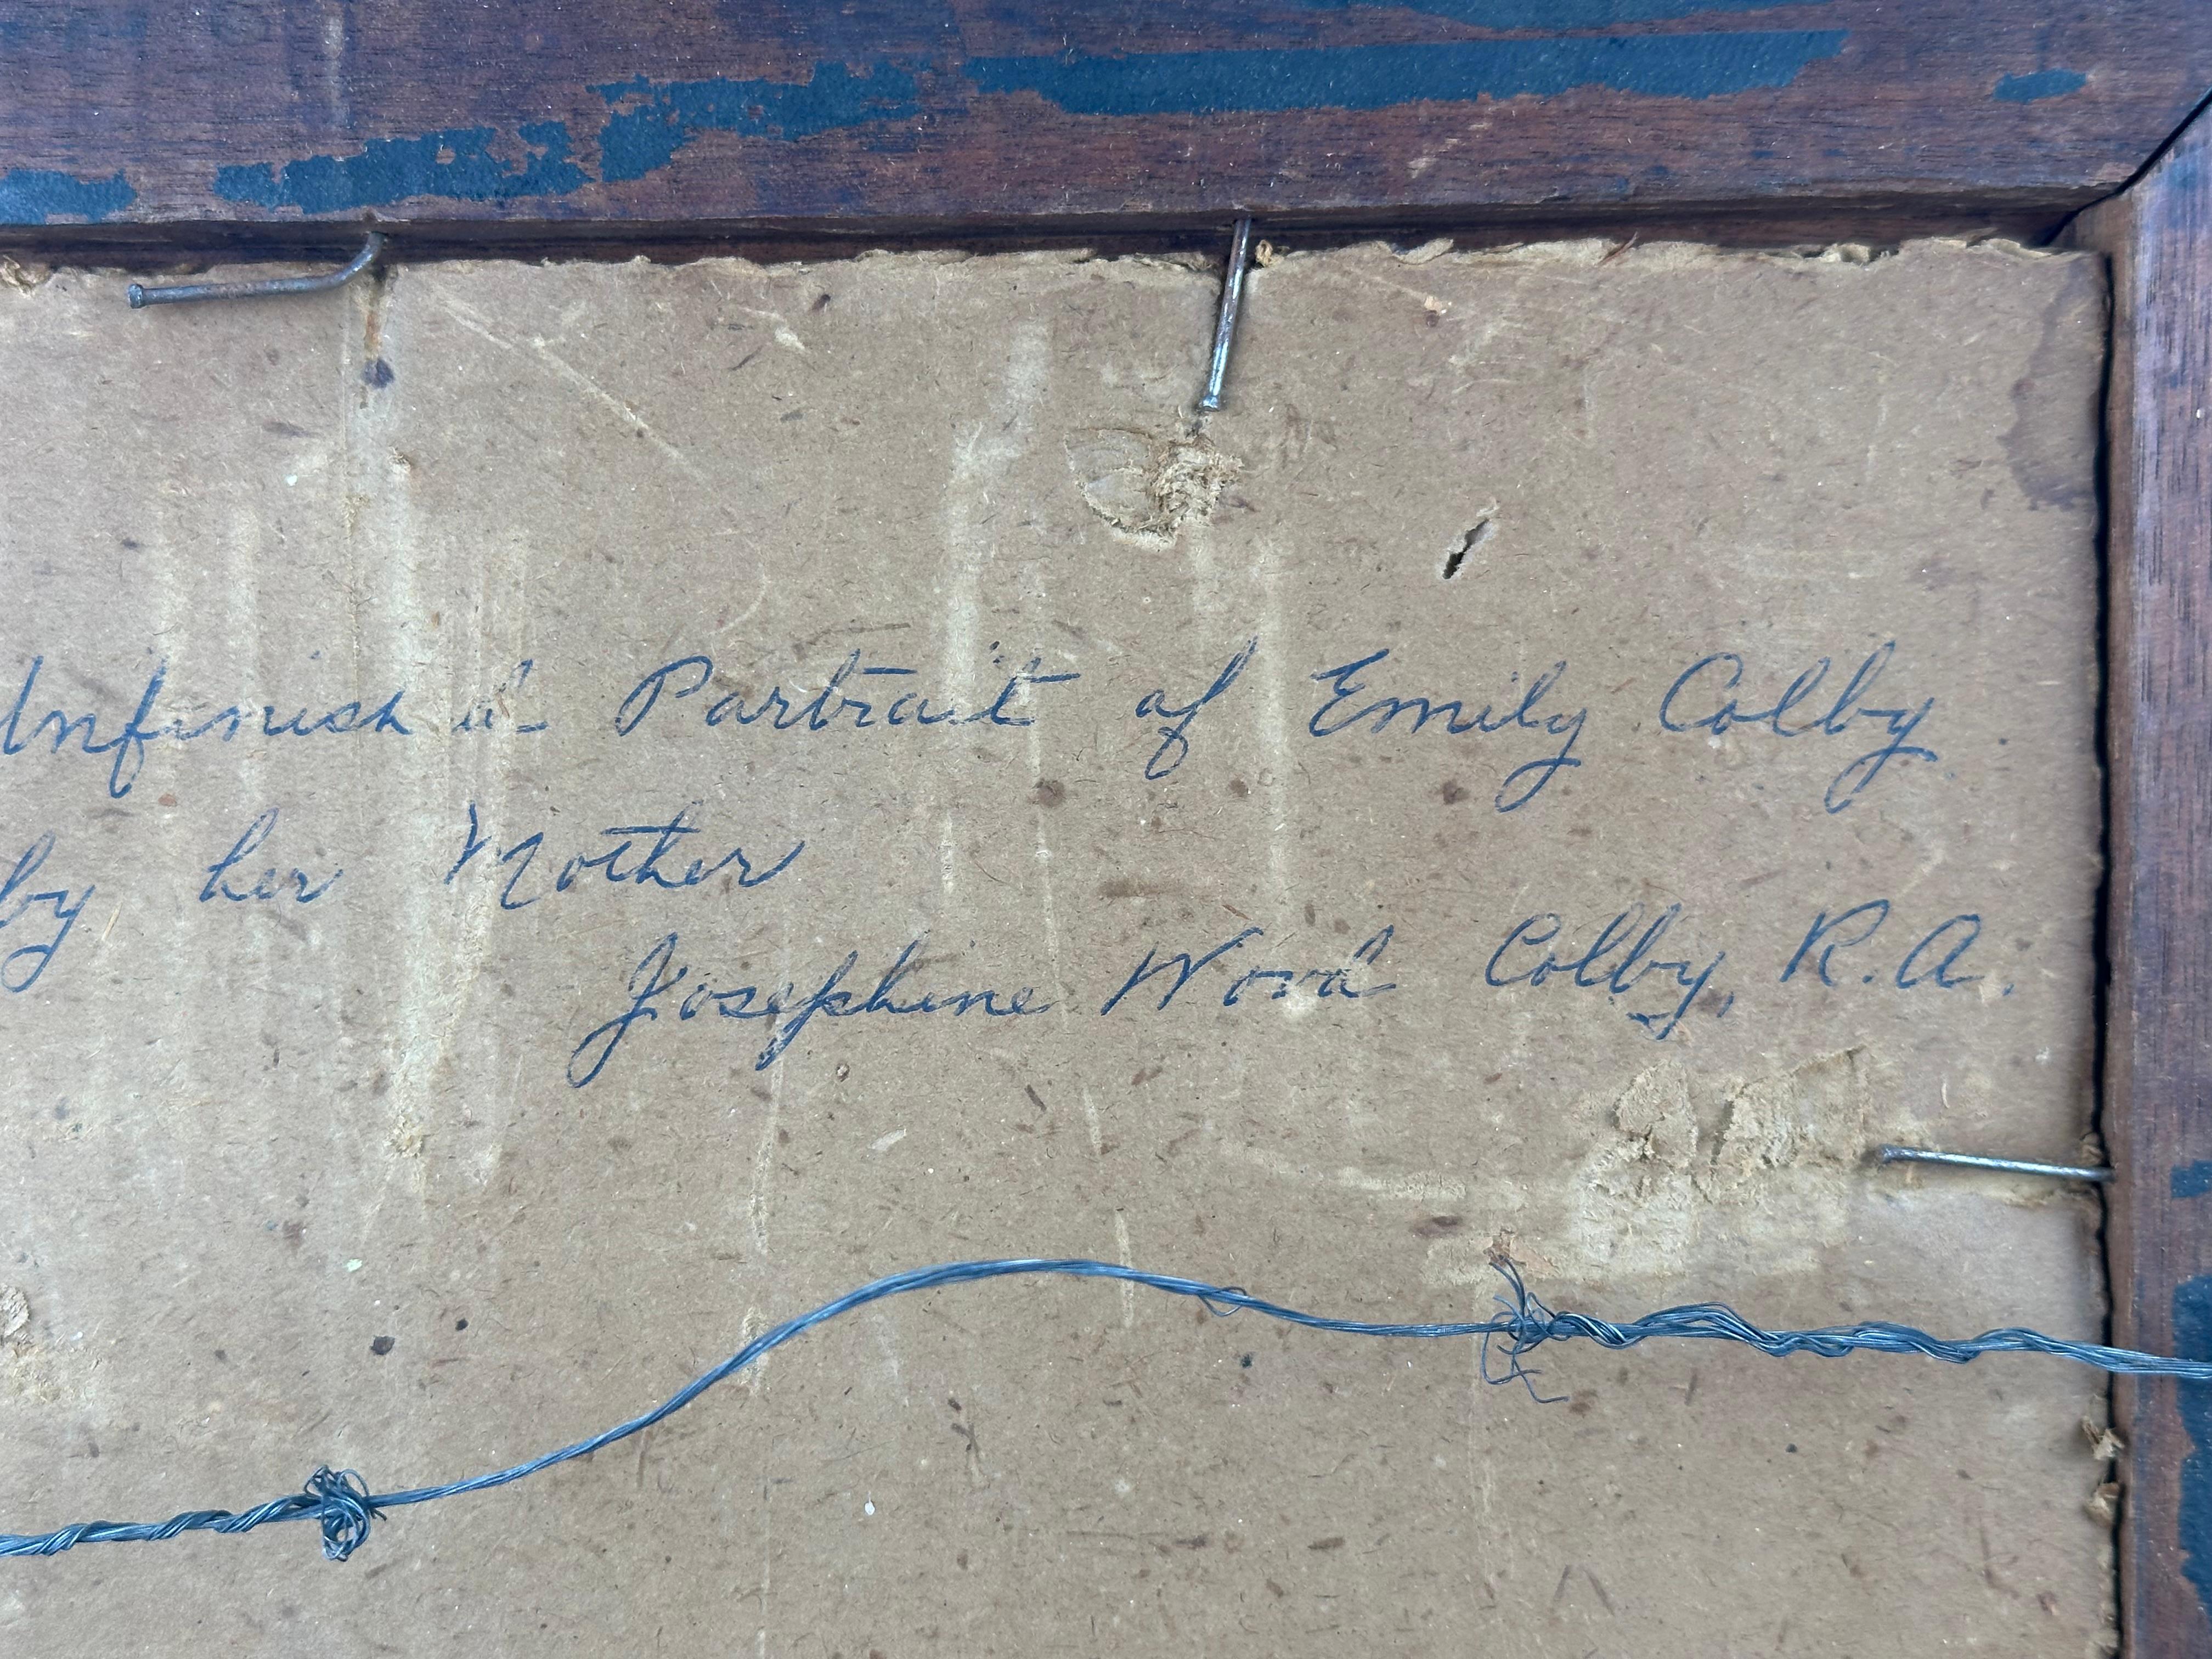 Unfinished Portrait of Emily Colby
by her Mother
Josephine Wood Colby, R.A.